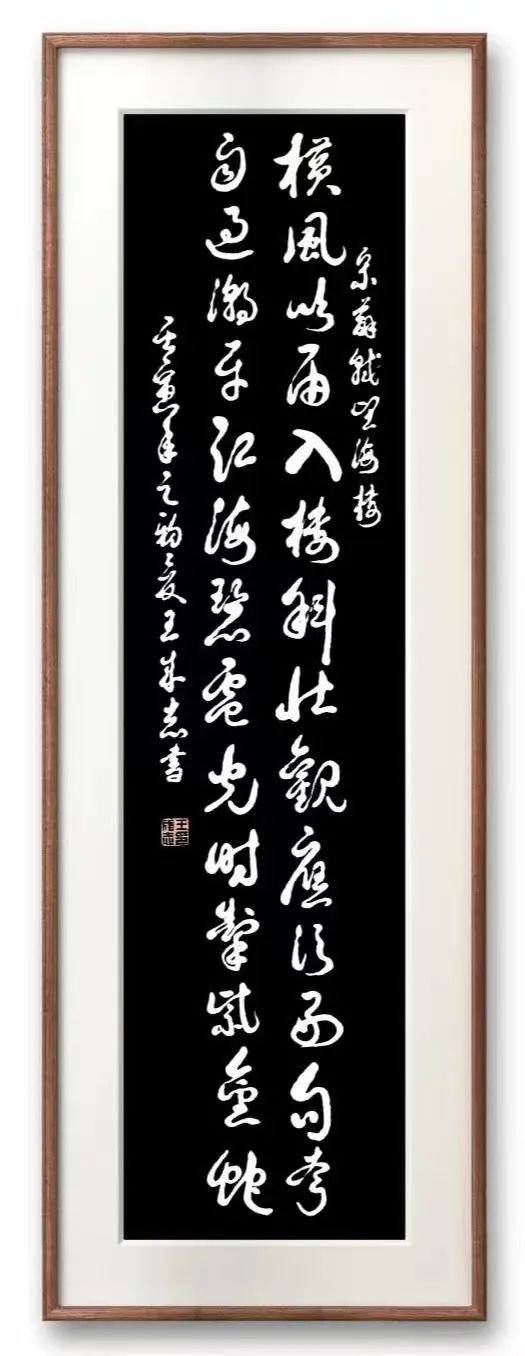 宋蘇軾望海樓
横風吹雨入樓斜壯觀應須好句夸
雨過潮平江海碧電光時掣紫金蛇
壬寅年之初夏王志書